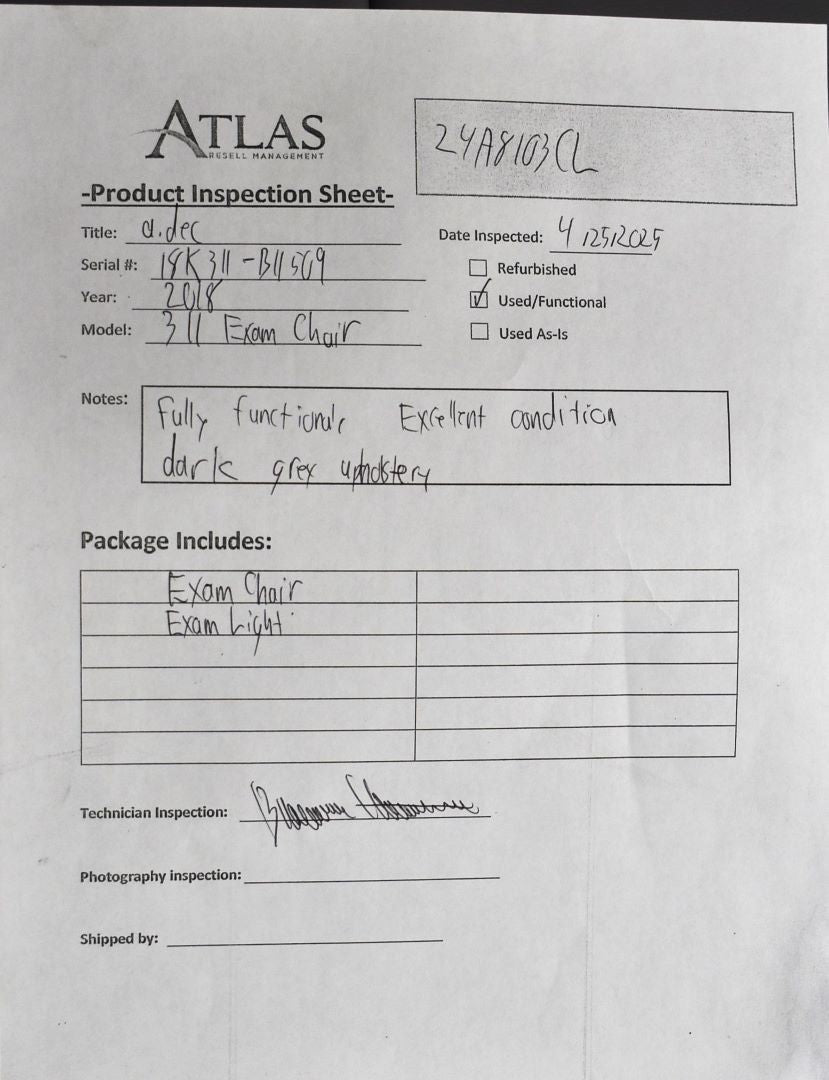 ATLAS
RESELL MANAGEMENT
24A8103CL
-Product Inspection Sheet-
Title: a.dec
Date Inspected: 4/25/2025
Serial #: 18K311-B11509
Refurbished
Year: 2018
Used/Functional
Model: 311 Exam Chair
Used As-Is
Notes: Fully functional, Excellent condition
dark grey upholstery
Package Includes:
Exam Chair
Exam Light
Technician Inspection:
Photography inspection:
Shipped by: